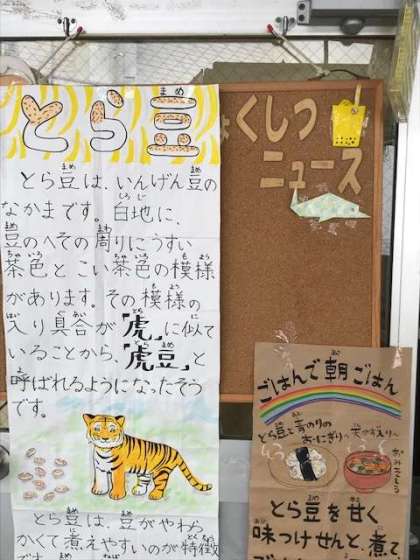 とら豆
とら豆は、いんげん豆の
なかまです。白地に、
豆のへその周りにうすい
茶色とこい茶色の模様
があります。その模様の
入り具合が「虎」に似て
いることから、「虎豆」と
呼ばれるようになったそう
です。
とら豆は、豆がやわら
かくて煮えやすいのが特徴
です
くしつ
ニュース
ごはんで朝ごはん
とら豆と青のりの
おにぎり
おみそしる
とら豆を甘く
味つけせんと、煮て